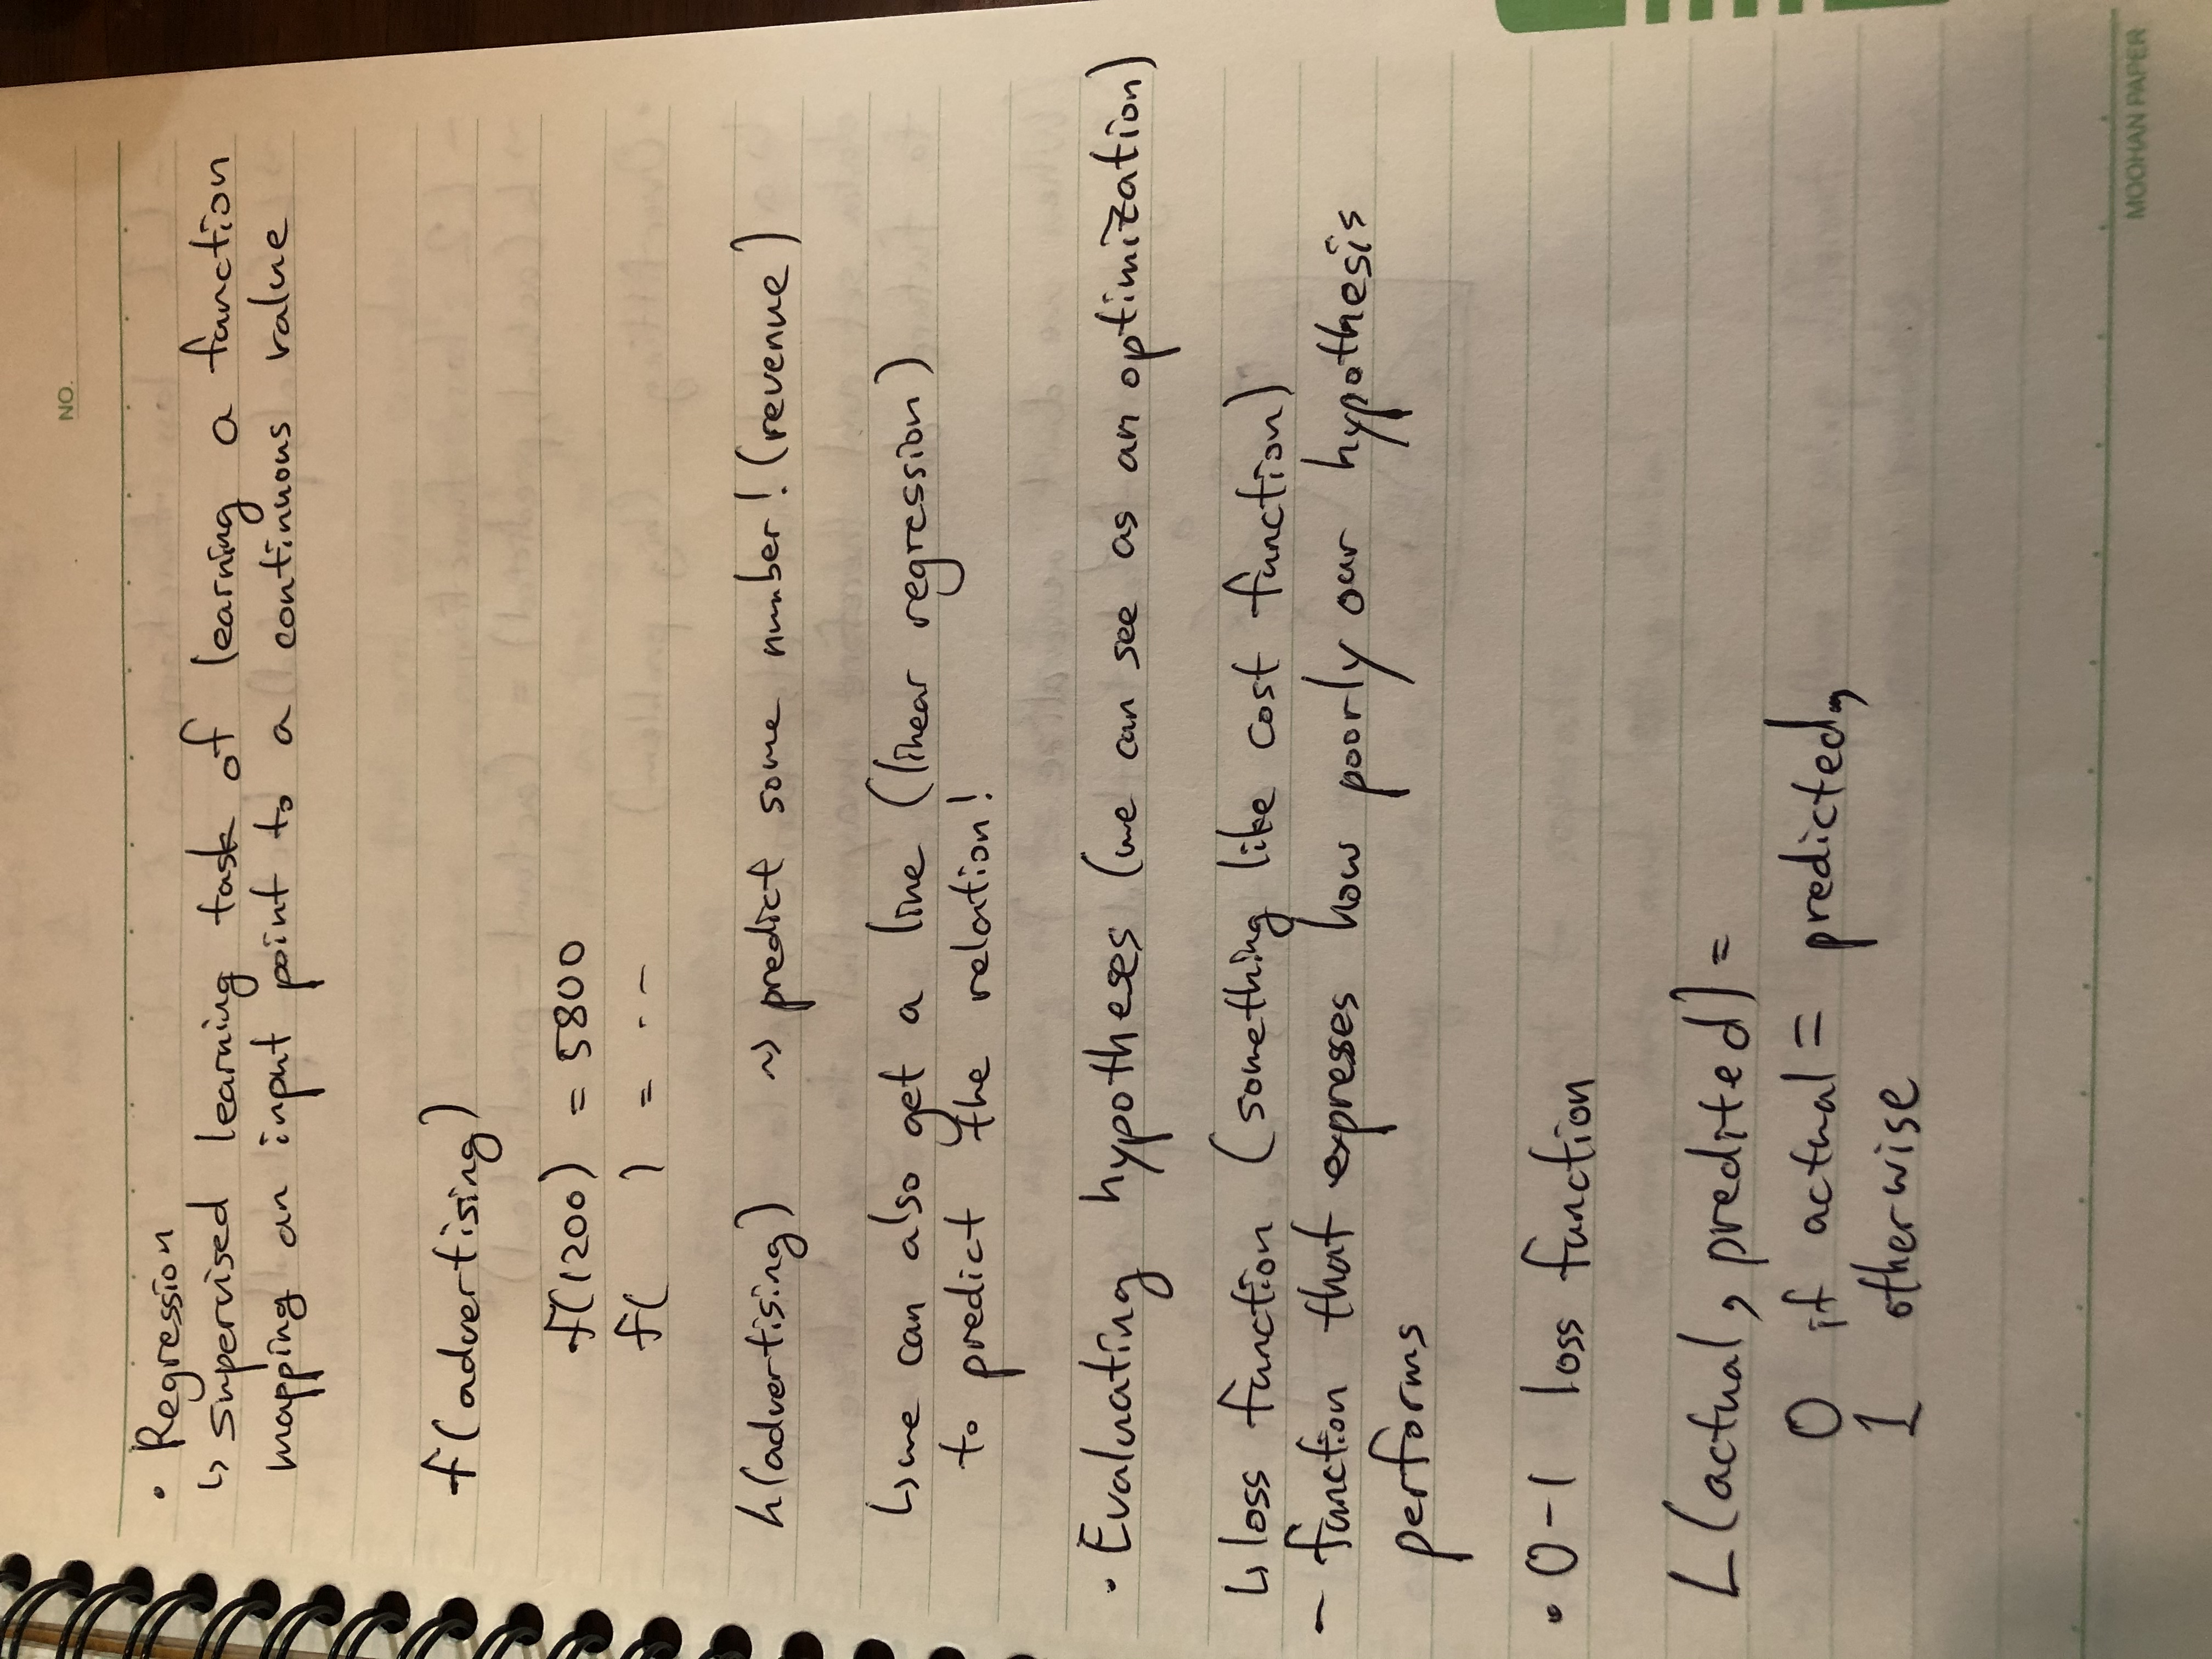 NO.
• Regression
↳ supervised learning task of learning a function
mapping an input point to a continuous value
f(advertising)
f(1200) = 5800
f( ) = ..-
h(advertising) ~> predict some number! (revenue)
↳ we can also get a line (linear regression)
to predict the relation!
• Evaluating hypotheses (we can see as an optimization)
↳ loss function (something like cost function)
- function that expresses how poorly our hypothesis
performs
• 0-1 loss function
L(actual, predited) =
0 if actual = predicted,
1 otherwise
MOOHAN PAPER